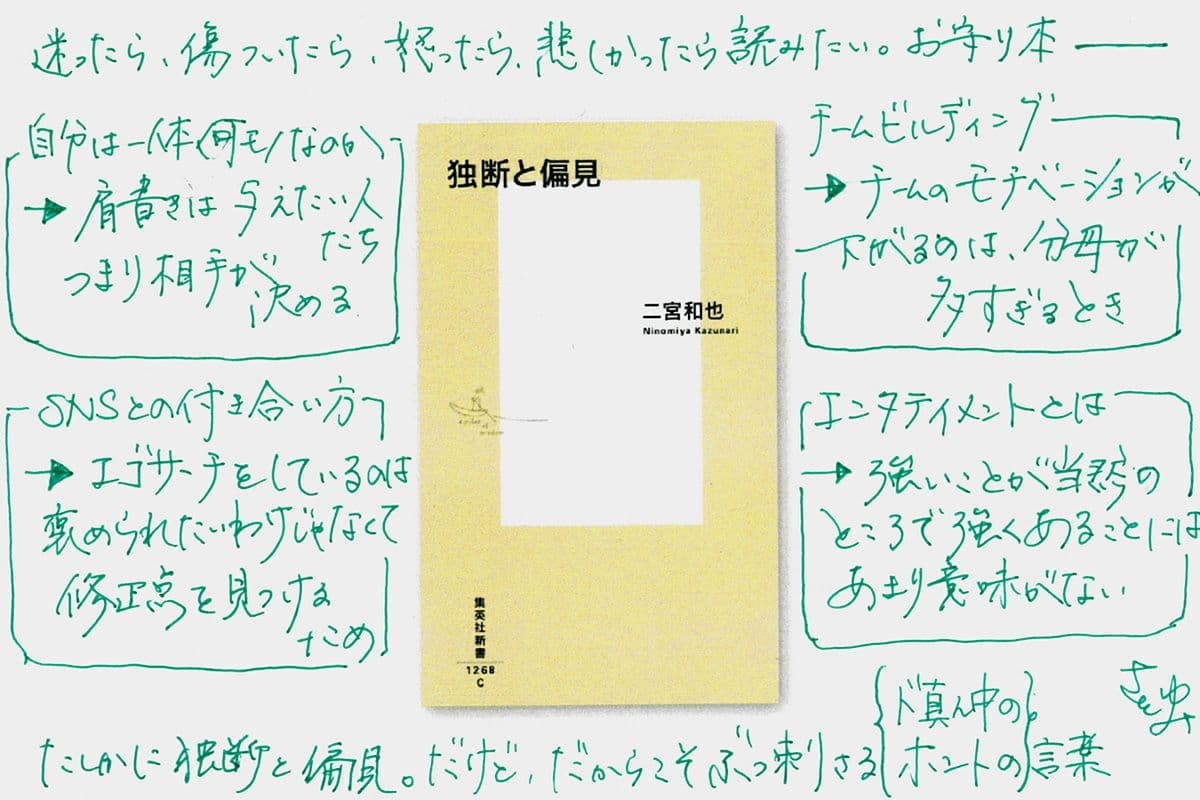 迷ったら、傷ついたら、怒ったら、悲しかったら読みたい。お守り本
自分は一体何モノなのか
→肩書きは与えたい人
たち
つまり相手が
決める
SNSとの付き合い方
→エゴサーチをしているのは
褒められたいわけじゃなくて
修正点を見つける
ため
独断と偏見
二宮和也
Ninomiya Kazunari
a pilot of wisdom
集英社新書
1268
C
チームビルディング
→チームのモチベーションが
下がるのは、分母が
多すぎるとき
エンタテイメントとは
→強いことが当然の
ところで強くあることには
あまり意味がない
たしかに独断と偏見。だけど、だからこそぶっ刺さる
ド真ん中の
ホントの
言葉